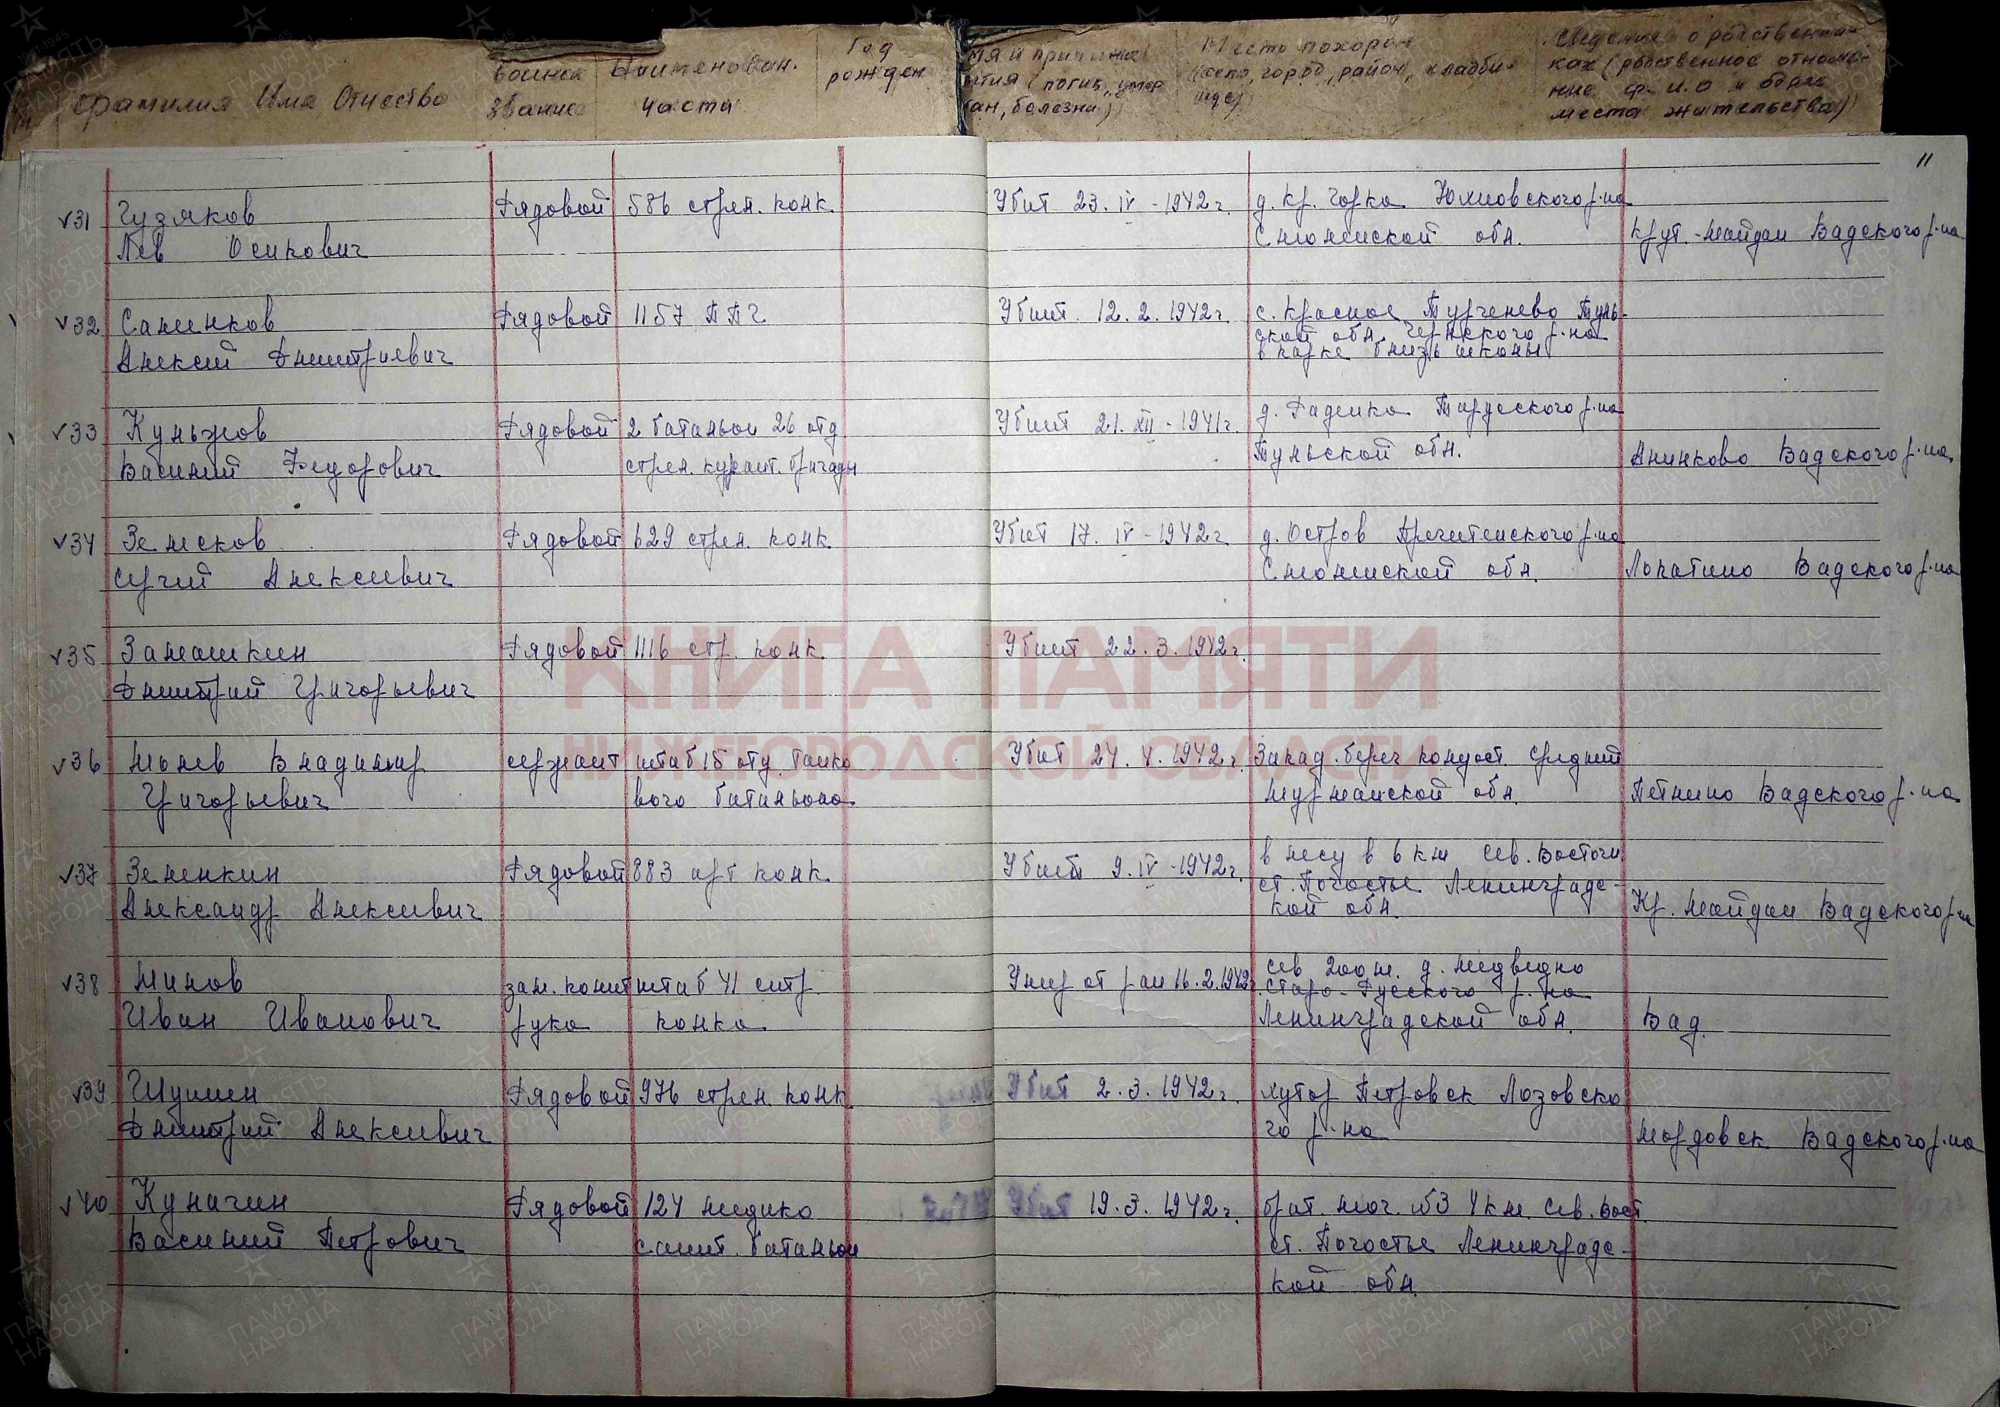 Фамилия Имя Отчество
воинск
звание
Наименован.
части
Год
рожден
мя и причина
тия (погиб, умер
ан, болезни)
Место похорон
(село, город, район, кладби-
ще)
Сведения о родственни-
ках (родственное отноше-
ние ф. и. о и адрес
места жительства)
11
31 Гузяков Рядовой 586 стрел. полк Убит 23. IV - 1942 г. д. Кр. Горка Юхновского р-на
Лев Осипович Смоленской обл. Крут. Майдан Вадского р-на
32 Саленков Рядовой 1157 ППГ Убит 12. 2. 1942 г. с. Красное Тургенево Туль-
Алексей Дмитриевич ской обл. Чернского р-на
в парке близь школы
33 Кульков Рядовой 2 батальон 26 отд. Убит 21. XII - 1941 г. д. Гаденка Тарусского р-на
Василий Федорович стрел. курсант. бригады Тульской обл. Анинково Вадского р-на
34 Земсков Рядовой 629 стрел. полк Убит 17. IV - 1942 г. д. Остров Пречистенского р-на
Сергей Алексеевич Смоленской обл. Лопатино Вадского р-на
35 Замашкин Рядовой 1116 стр. полк. Убит 22. 3. 1942 г.
Дмитрий Григорьевич
36 Мочев Владимир сержант штаб 15 отд. танко Убит 24. V. 1942 г. Запад. берег полуост. Средний
Григорьевич вого батальона Мурманской обл. Петлино Вадского р-на
37 Зеленкин Рядовой 883 арт полк. Убит 9. IV - 1942 г. в лесу в 6 км сев. восточн.
Александр Алексеевич ст. Погостье Ленинградс-
кой обл. Кр. Майдан Вадского р-на
38 Минов зам. полит штаб 41 стр. Умер от ран 16. 2. 1942 г. сев 200 м. д. Медведно
Старо-Русского р-на
Иван Иванович рука полка Ленинградской обл. Вад
39 Шулин Рядовой 976 стрел. полк Убит 2. 3. 1942 г. хутор Петровск Лозовско
Дмитрий Алексеевич го р-на Мордовск Вадского р-на
40 Кулагин Рядовой 124 медико Убит 19. 3. 1942 г. брат. мог. №3 4 км. сев. вост.
Василий Петрович санит. батальон ст. Погостье Ленинградс-
кой обл.
КНИГА ПАМЯТИ
НИЖЕГОРОДСКОЙ ОБЛАСТИ
ПАМЯТЬ
НАРОДА